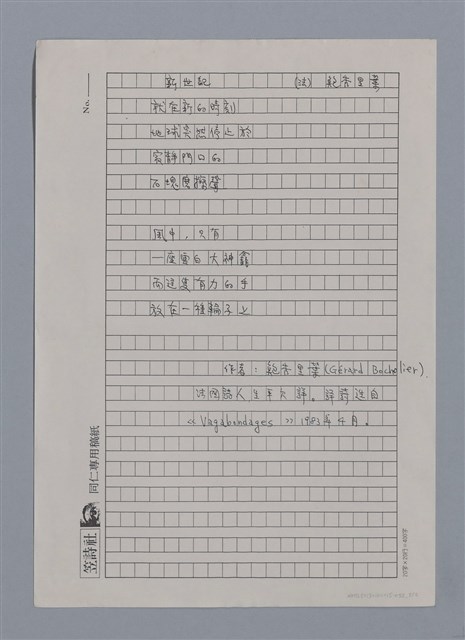 新世紀 (法) 鮑秀里葉
就在新的時刻
地球突然停止於
寂靜門口的
石塊磨擦聲
風中，只有
一座雪白大神龕
而這隻有力的手
放在一種輪子上
作者：鮑秀里葉(Gérard Bocholier).
法國詩人生年欠詳。詩譯選自
《Vagabondages》1983年4月。
No.
笠詩社 同仁專用稿紙